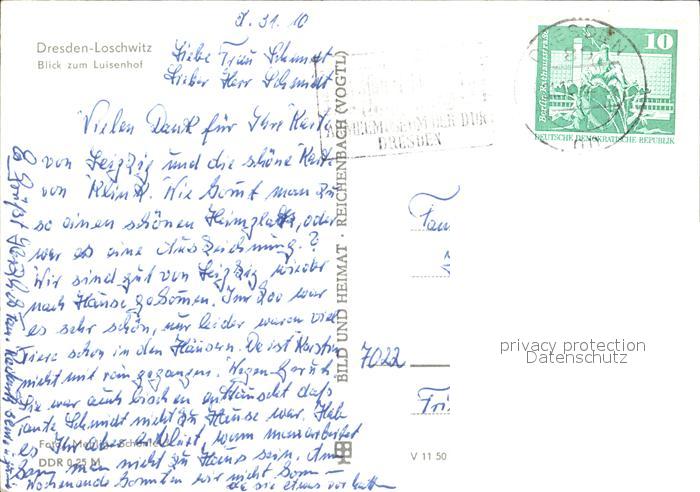 d. 31. 10
Dresden-Loschwitz
Blick zum Luisenhof
Liebe Frau Schmidt
Lieber Herr Schmidt
Vielen Dank für Ihre Karte
von Leipzig und die schöne Karte
von Klink. Wie kommt man zu
so einen schönen Heimplatz, oder
war es eine Auszeichnung.?
Wir sind gut von Leipzig wieder
nach Hause gekommen. Im Zoo war
es sehr schön, nur leider waren viel
Tiere schon in den Häusern. Da ist Kerstin
nicht mit rein gegangen. Wegen Geruch.
Sie war auch bischen enttäuscht daß
Tante Schmidt nicht zu Hause war. Hab
es Ihr aber erklärt, wenn man arbeitet
kann man nicht zu Haus sein. Am
Wochenende konnten wir nicht komm
da sie etwas vor hatten
Es Grüßt Herzlich
Foto:
DDR 0.25 M
BILD UND HEIMAT · REICHENBACH (VOGTL)
V 11 50
DRESDEN
DRESDEN
Berlin, Rathausstraße
10
DEUTSCHE DEMOKRATISCHE REPUBLIK
Fam
7022
privacy protection
Datenschutz